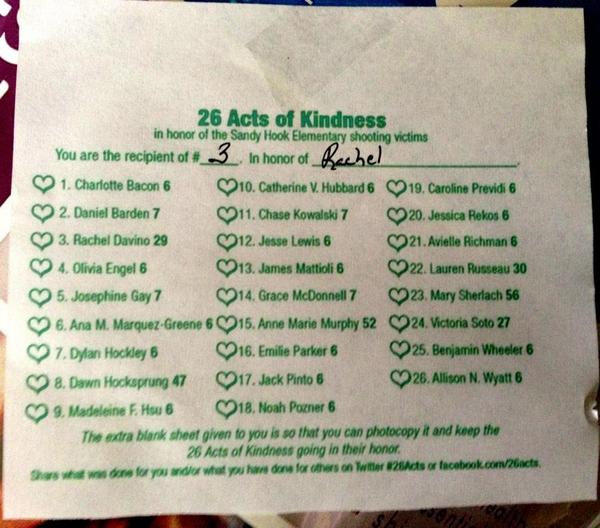 26 Acts of Kindness
in honor of the Sandy Hook Elementary shooting victims
You are the recipient of # 3. In honor of Rachel
1. Charlotte Bacon 6
2. Daniel Barden 7
3. Rachel Davino 29
4. Olivia Engel 6
5. Josephine Gay 7
6. Ana M. Marquez-Greene 6
7. Dylan Hockley 6
8. Dawn Hocksprung 47
9. Madeleine F. Hsu 6
10. Catherine V. Hubbard 6
11. Chase Kowalski 7
12. Jesse Lewis 6
13. James Mattioli 6
14. Grace McDonnell 7
15. Anne Marie Murphy 52
16. Emilie Parker 6
17. Jack Pinto 6
18. Noah Pozner 6
19. Caroline Previdi 6
20. Jessica Rekos 6
21. Avielle Richman 6
22. Lauren Russeau 30
23. Mary Sherlach 56
24. Victoria Soto 27
25. Benjamin Wheeler 6
26. Allison N. Wyatt 6
The extra blank sheet given to you is so that you can photocopy it and keep the
26 Acts of Kindness going in their honor.
Share what was done for you and/or what you have done for others on Twitter #26Acts or facebook.com/26acts.